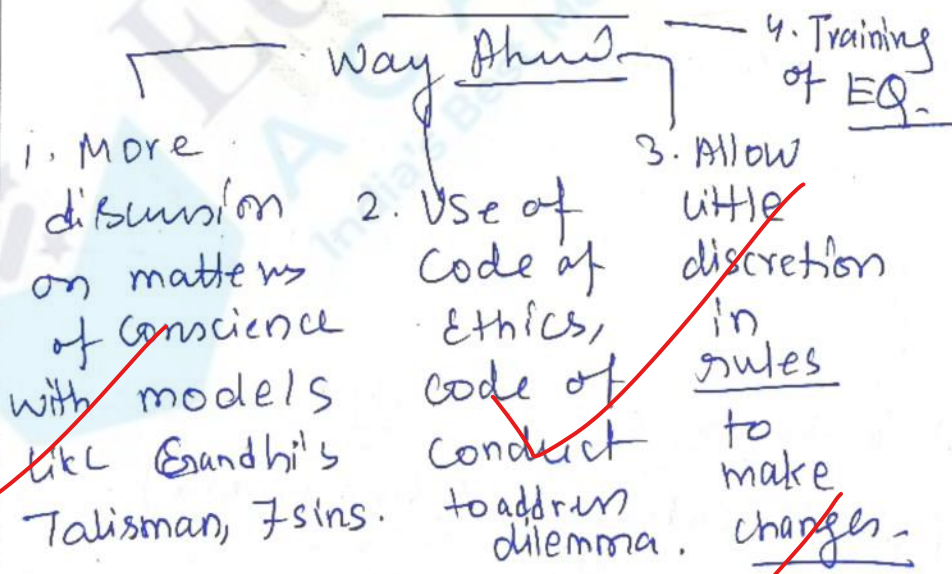 Way Ahead
1. More
discussion
on matters
of conscience
with models
like Gandhi's
Talisman, 7 sins.
2. Use of
Code of
Ethics,
code of
conduct
to address
dilemma.
3. Allow
little
discretion
in
rules
to
make
changes.
4. Training
of EQ.
India's Bes